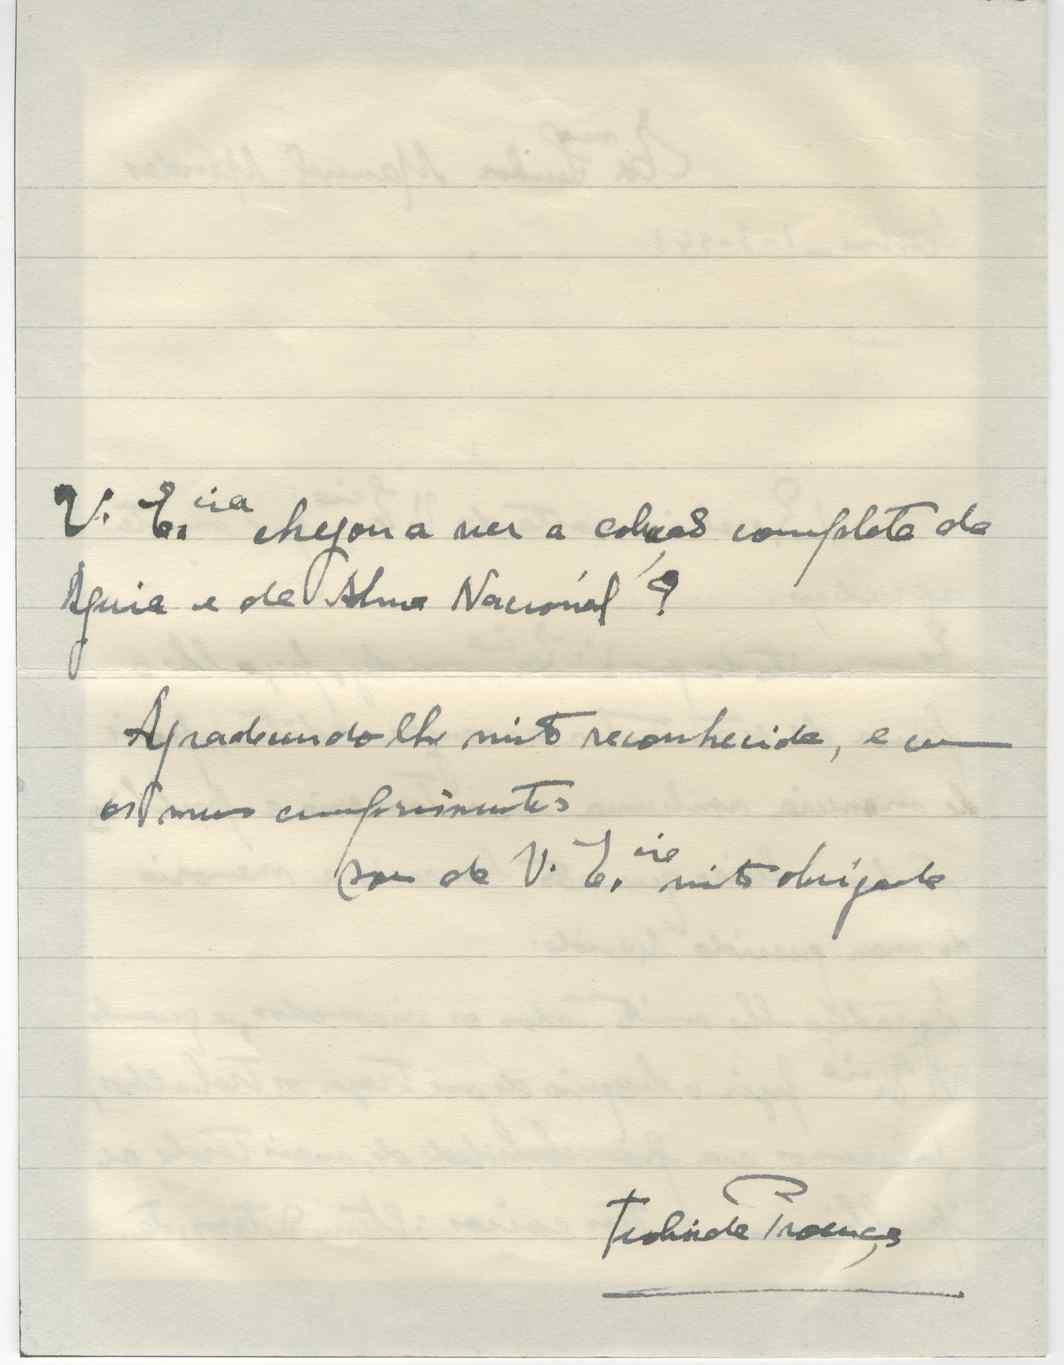 V. E.cia chegou a ver a coleção completa da
Aguia e da Alma Nacional?
Agradecendo lhe muito reconhecida, e com
os meus cumprimentos
sou de V. E.cia muito obrigada
Teolinda Proença